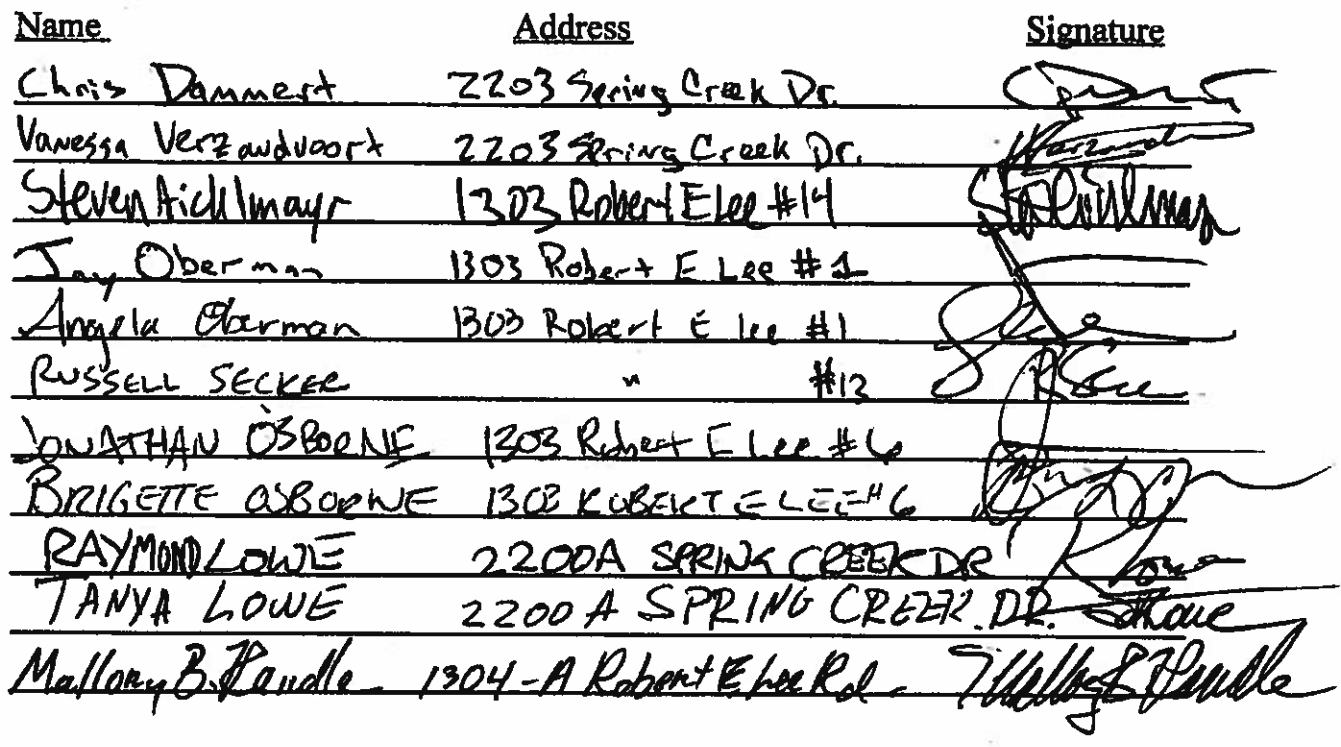 Name Address Signature
Chris Dammert 2203 Spring Creek Dr.
Vanessa Verzandvoort 2203 Spring Creek Dr.
Steven Aicklmayr 1303 Robert E Lee #14
Jay Oberman 1303 Robert E Lee #1
Angela Oberman 1303 Robert E lee #1
RUSSELL SECKER " #12
JONATHAN OSBORNE 1303 Robert E Lee #6
BRIGETTE OSBORNE 1303 ROBERT E LEE #6
RAYMOND LOWE 2200A SPRING CREEK DR
TANYA LOWE 2200 A SPRING CREEK DR.
Mallory B. 1304-A Robert E Lee Rd.